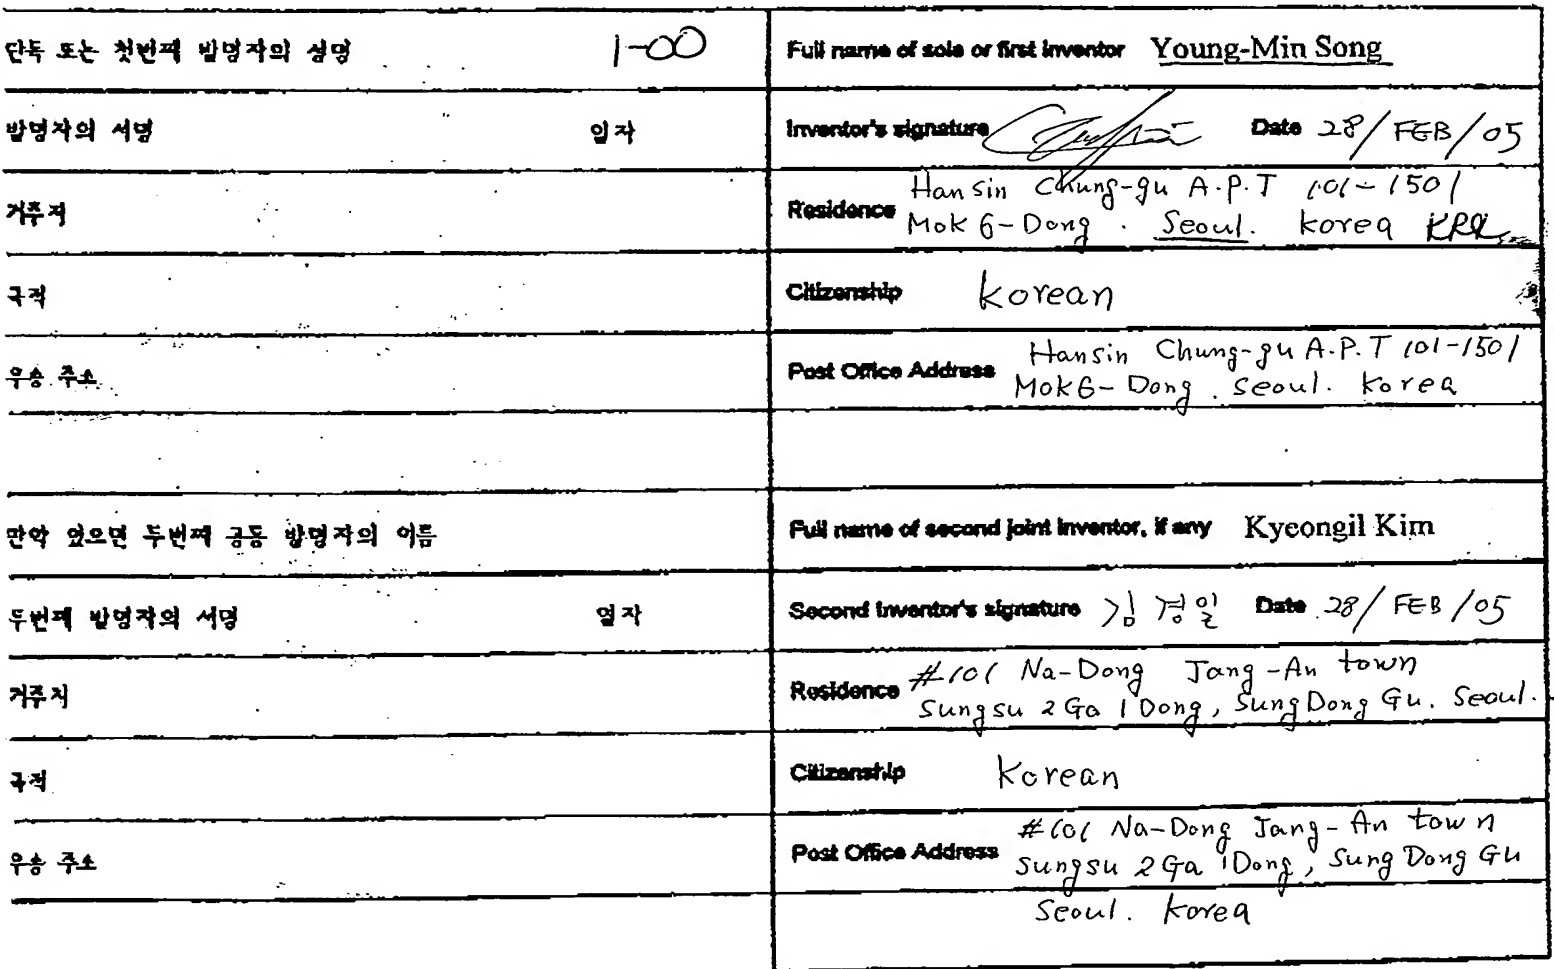 단독 또는 첫번째 발명자의 성명 1-00 Full name of sole or first inventor Young-Min Song
발명자의 서명 일자 Inventor's signature Date 28/FEB/05
거주지 Residence Hansin Chung-gu A.P.T 101-1501
Mok 6-Dong. Seoul. korea KRX
국적 Citizenship korean
우송 주소 Post Office Address Hansin Chung-gu A.P.T 101-1501
Mok6-Dong. seoul. korea
만약 있으면 두번째 공동 발명자의 이름 Full name of second joint inventor, if any Kyeongil Kim
두번째 발명자의 서명 일자 Second Inventor's signature 김경일 Date 28/FEB/05
거주지 Residence #101 Na-Dong Jang-An town
Sungsu 2Ga 1Dong, SungDong Gu. Seoul.
국적 Citizenship Korean
우송 주소 Post Office Address #101 Na-Dong Jang-An town
Sungsu 2Ga 1Dong, Sung Dong Gu
Seoul. korea